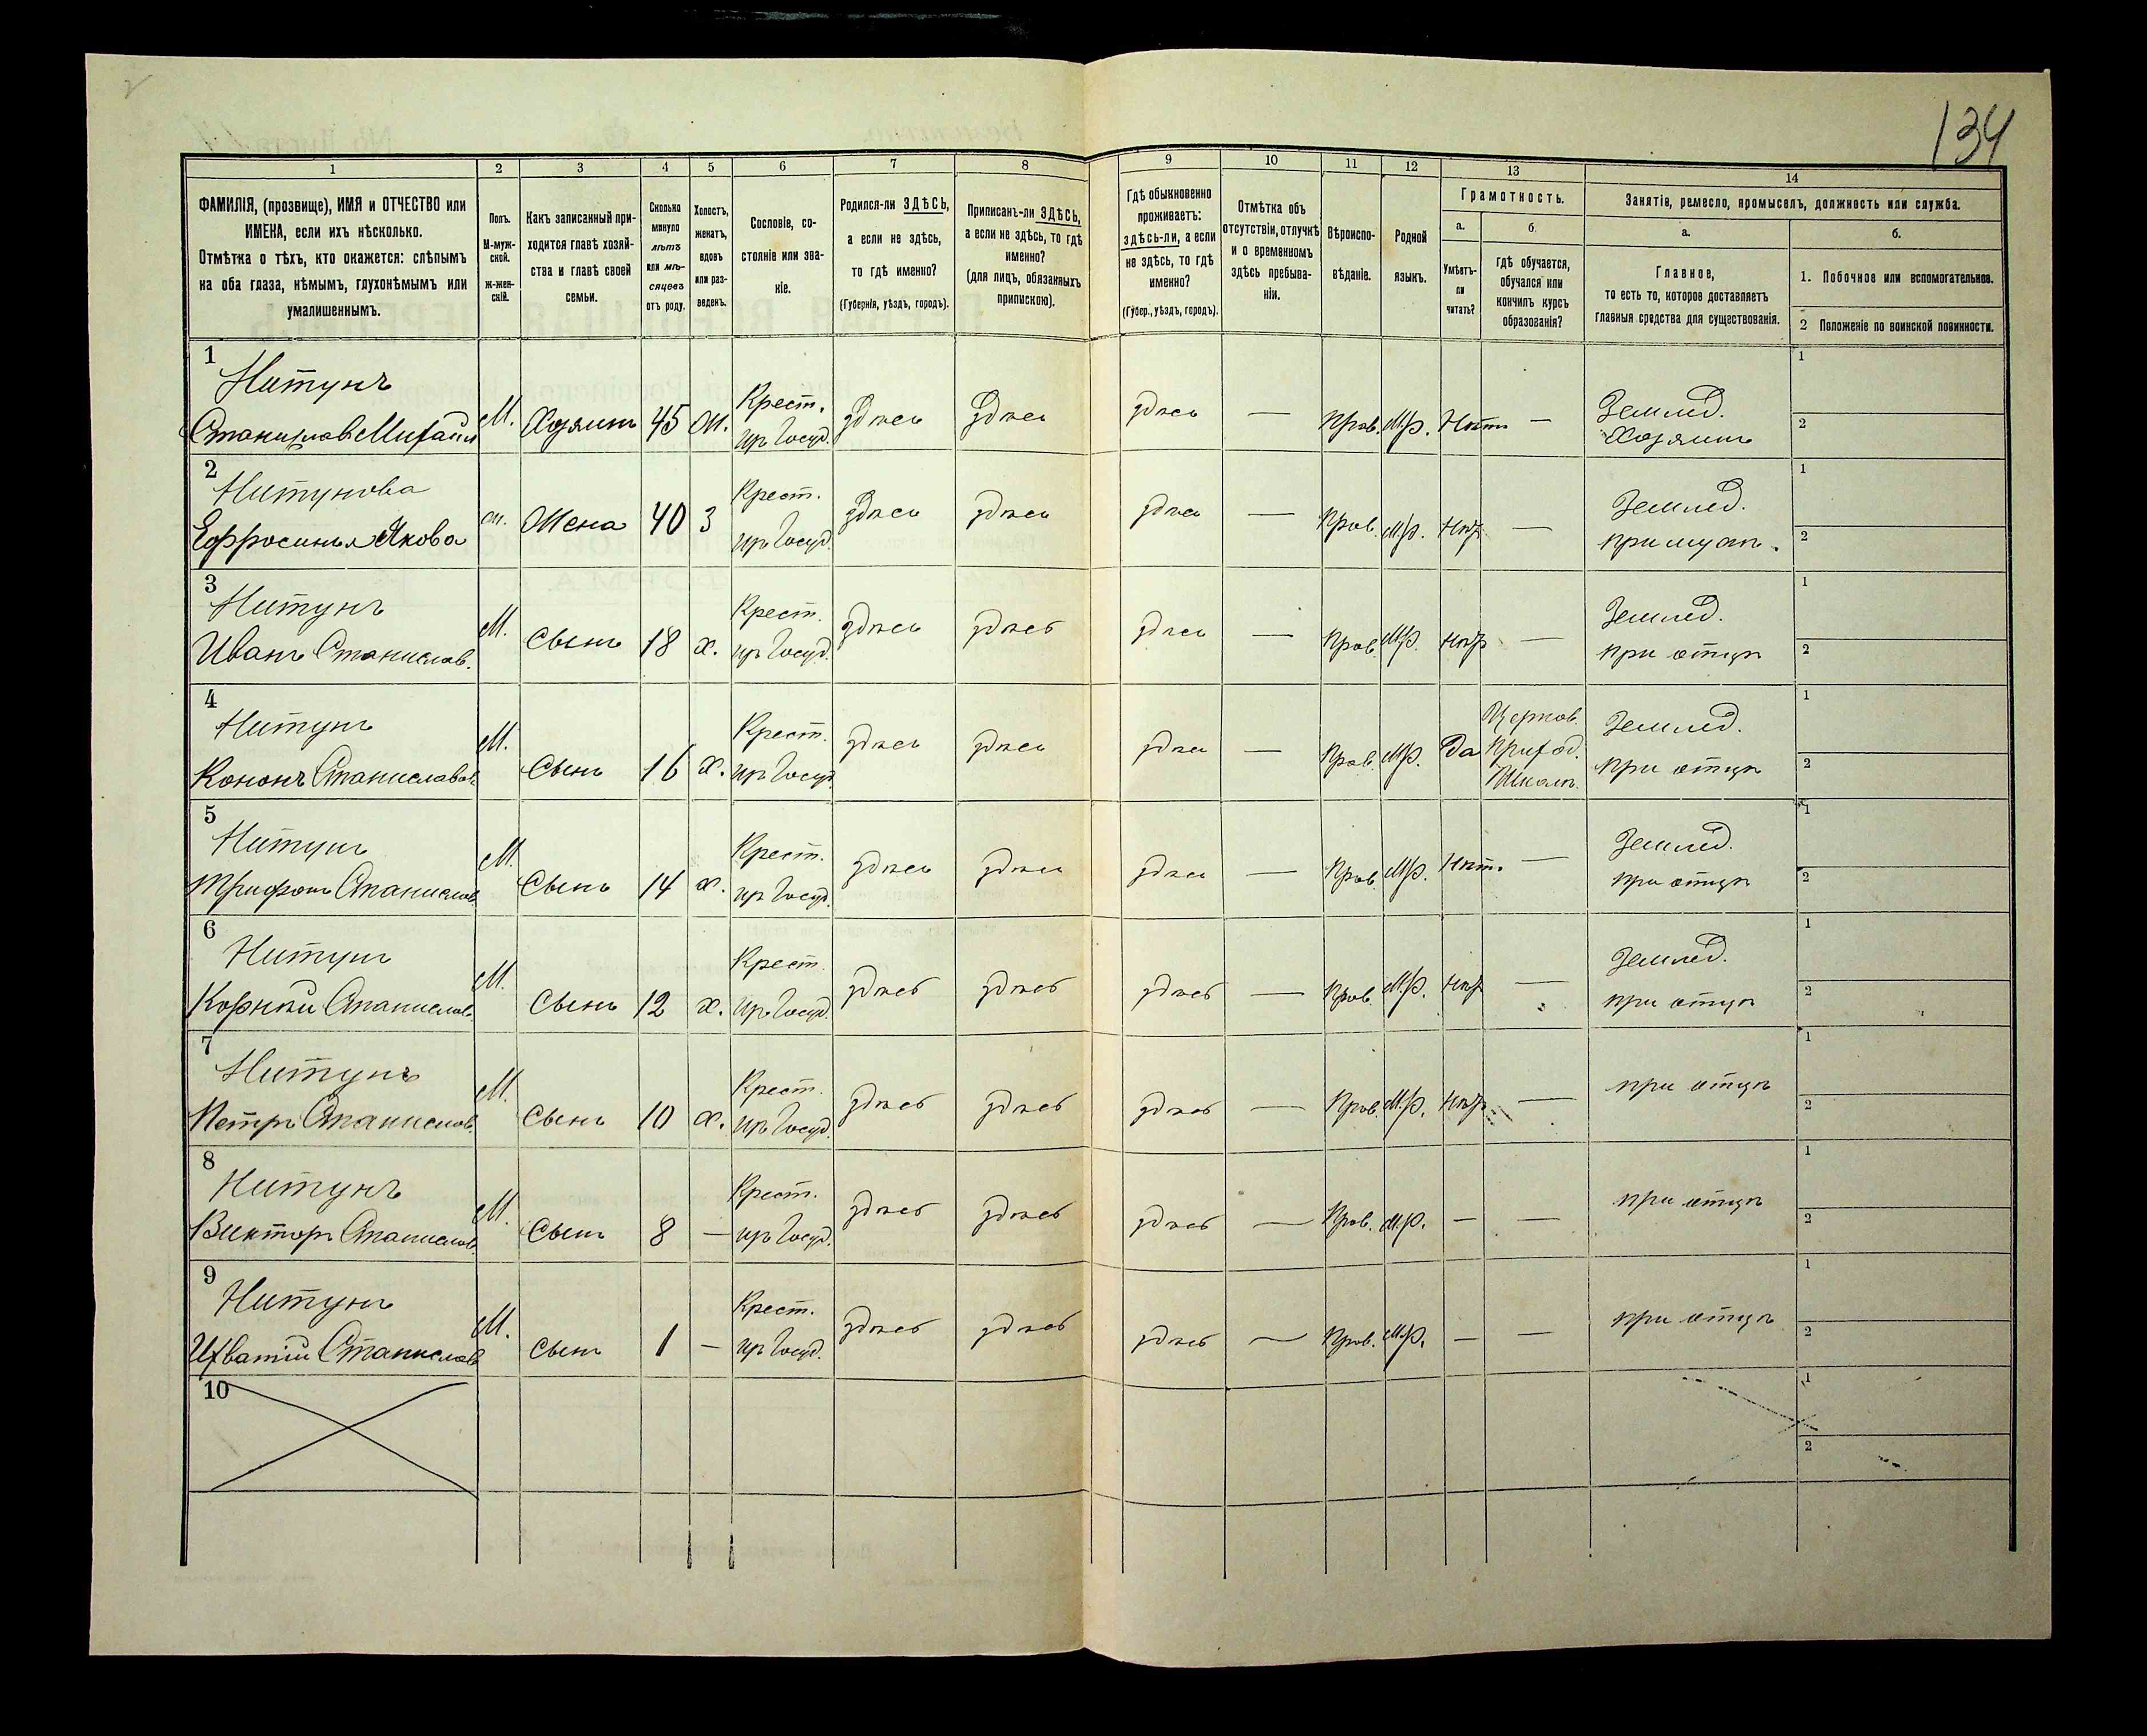 134
1 2 3 4 5 6 7 8 9 10 11 12 13 14
ФАМИЛІЯ, (прозвище), ИМЯ и ОТЧЕСТВО или
ИМЕНА, если ихъ нѣсколько.
Отмѣтка о тѣхъ, кто окажется: слѣпымъ
на оба глаза, нѣмымъ, глухонѣмымъ или
умалишеннымъ.
Полъ.
М-муж-
ской.
Ж-жен-
скій.
Какъ записанный при-
ходится главѣ хозяй-
ства и главѣ своей
семьи.
Сколько
минуло
лѣтъ
или мѣ-
сяцевъ
отъ роду.
Холостъ,
женатъ,
вдовъ
или раз-
веденъ.
Сословіе, со-
стояніе или зва-
ніе.
Родился-ли ЗДѢСЬ,
а если не здѣсь,
то гдѣ именно?
(Губернія, уѣздъ, городъ).
Приписанъ-ли ЗДѢСЬ,
а если не здѣсь, то гдѣ
именно?
(для лицъ, обязанныхъ
припискою).
Гдѣ обыкновенно
проживаетъ:
здѣсь-ли, а если
не здѣсь, то гдѣ
именно?
(Губер., уѣздъ, городъ).
Отмѣтка объ
отсутствіи, отлучкѣ
и о временномъ
здѣсь пребыва-
ніи.
Вѣроиспо-
вѣданіе.
Родной
языкъ.
Грамотность.
а.
Умѣетъ-
ли
читать?
б.
гдѣ обучается,
обучался или
кончилъ курсъ
образованія?
Занятіе, ремесло, промыселъ, должность или служба.
а.
Главное,
то есть то, которое доставляетъ
главныя средства для существованія.
б.
1. Побочное или вспомогательное.
2 Положеніе по воинской повинности.
1
Нитунъ
Станиславъ Михайл
М. Хозяинъ 45 Ж. Крест.
изъ Госуд. здѣсь здѣсь здѣсь — Прав. М.р. Нѣтъ — Землед.
Хозяинъ
1
2
2
Нитунова
Ефросинья Якова
ж. Жена 40 З Крест.
изъ Госуд. здѣсь здѣсь здѣсь — Прав. М.р. Нѣт — Землед.
при мужѣ.
1
2
3
Нитунъ
Иванъ Станислав.
М. Сынъ 18 х. Крест.
изъ Госуд. здѣсь здѣсь здѣсь — Прав. М.р. нѣт — Землед.
при отцѣ
1
2
4
Нитунъ
Кононъ Станиславов.
М. Сынъ 16 х. Крест.
изъ Госуд. здѣсь здѣсь здѣсь — Прав. М.р. Да Церков.
Приход.
Школѣ. Землед.
при отцѣ
1
2
5
Нитунъ
Трифонъ Станислав
М. Сынъ 14 х. Крест.
изъ Госуд. здѣсь здѣсь здѣсь — Прав. М.р. Нѣт. — Землед.
при отцѣ
1
2
6
Нитунъ
Корнѣй Станислав.
М. Сынъ 12 х. Крест.
изъ Госуд. здѣсь здѣсь здѣсь — Прав. М.р. Нѣт — Землед.
при отцѣ
1
2
7
Нитунъ
Петръ Станислав.
М. Сынъ 10 х. Крест.
изъ Госуд. здѣсь здѣсь здѣсь — Прав. М.р. Нѣт — при отцѣ
1
2
8
Нитунъ
Викторъ Станислав.
М. Сынъ 8 — Крест.
изъ Госуд. здѣсь здѣсь здѣсь — Прав. М.р. — — при отцѣ
1
2
9
Нитунъ
Станислав
М. Сынъ 1 — Крест.
изъ Госуд. здѣсь здѣсь здѣсь — Прав. М.р. — — при отцѣ
1
2
10
1
2